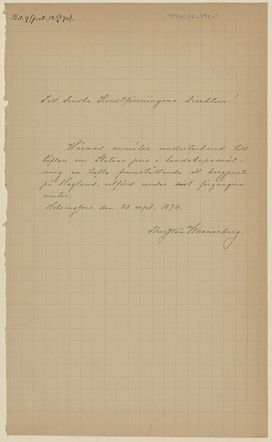 Bil. 9 (prot. 18 13/X 94).
Till Finska Konstföreningens Direktion!
Härmed anmäler undertecknad till
täflan om Statens pris i landskapsmål-
ning en tafla framställande ett bergparti
på Hogland, utförd under sist förgångna
vinter.
Helsingfors den 30 sept. 1894.
Thorsten Waenerberg.